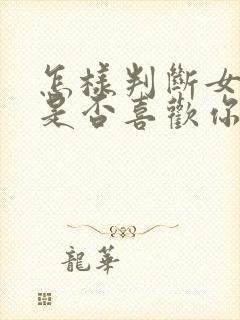 怎樣判斷女
是否喜歡你
龍華